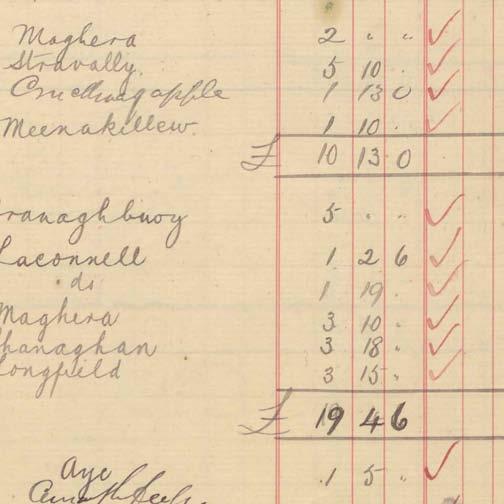 Maghera 2 " "
Stravally. 5 10 .
1 13 0
Meenakillew. 1 10 .
£ 10 13 0
ranaghbuoy 5 . .
Laconnell 1 2 6
" do 1 19 .
Maghera 3 10 .
hanaghan 3 18 "
ongfield 3 15 "
£ 19 4 6
Aye 1 5 "